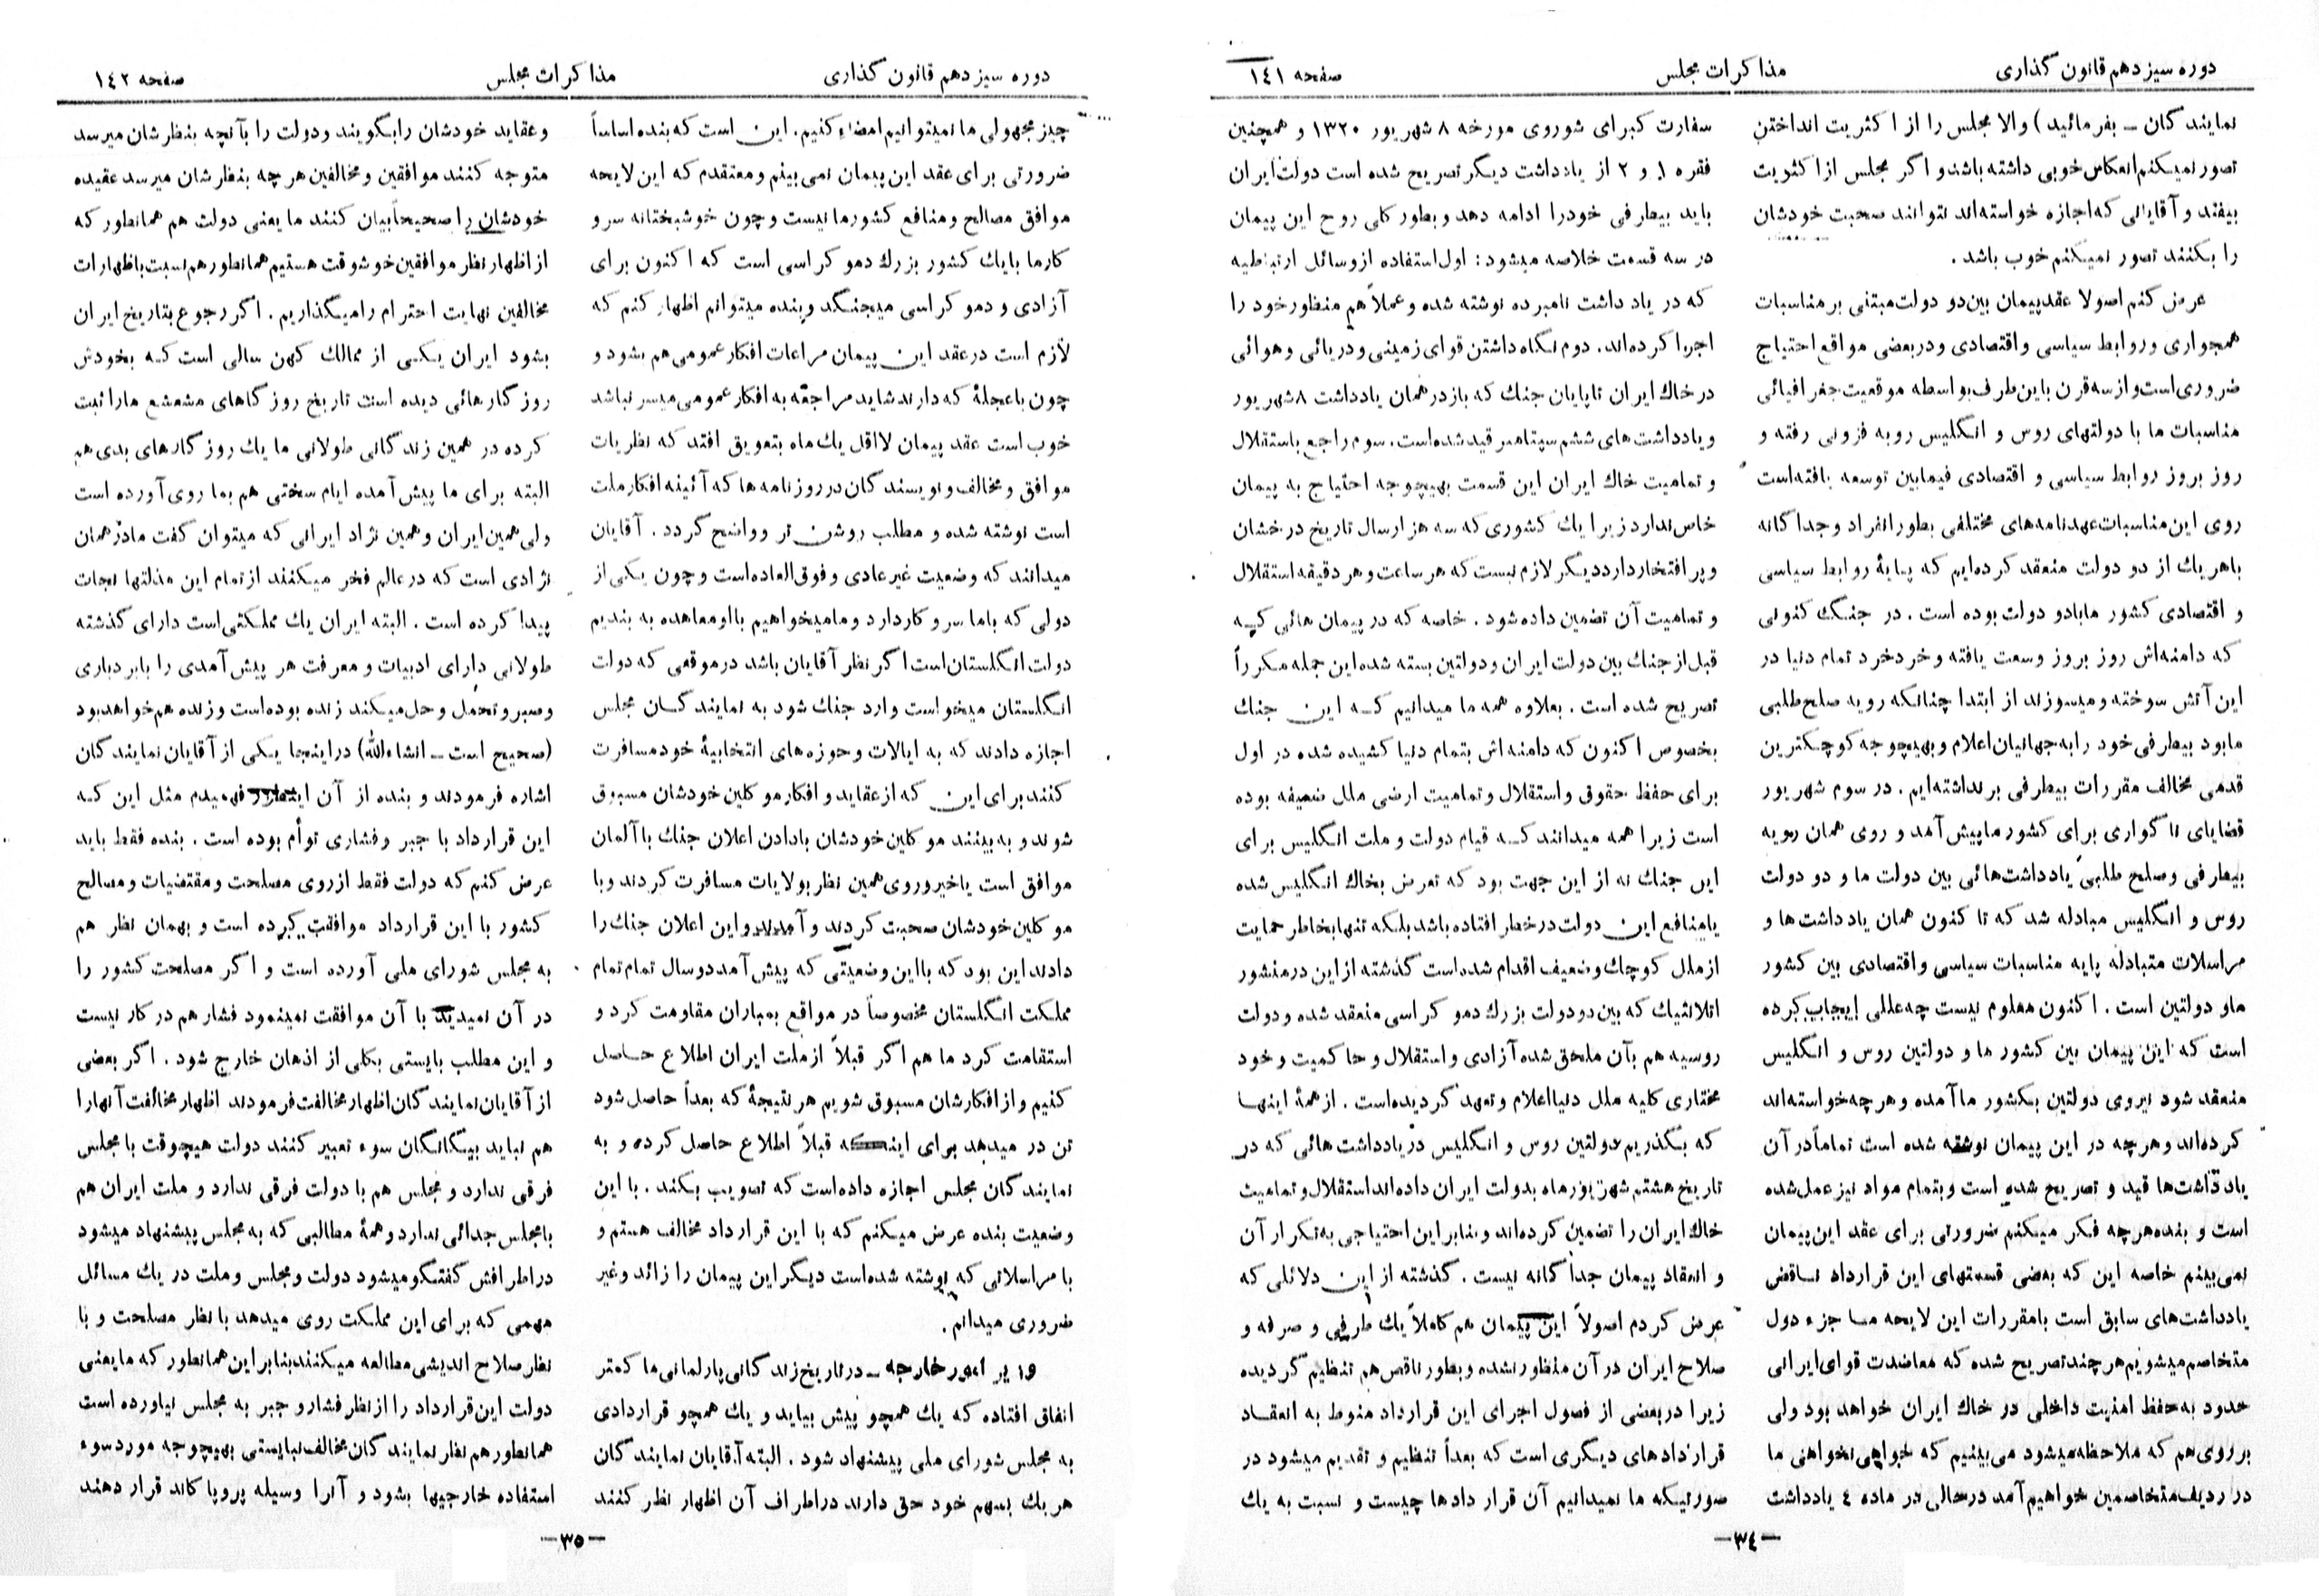 دوره سیزدهم قانون گذاری
مذاکرات مجلس
صفحه ۱۴۱
نمایندگان ــ بفرمائید) والا مجلس را از اکثریت انداختن
تصور نمیکنم انعکاس خوبی داشته باشد و اگر مجلس از اکثریت
بیفتد و آقایانی که اجازه خواسته‌اند نتوانند صحبت خودشان
را بکنند تصور نمیکنم خوب باشد .
عرض کنم اصولا عقد پیمان بین دو دولت مبتنی بر مناسبات
همجواری و روابط سیاسی و اقتصادی و در بعضی مواقع احتیاج
ضروری است و از سه قرن باین طرف بواسطه موقعیت جغرافیائی
مناسبات ما با دولتهای روس و انگلیس رو به فزونی رفته و
روز بروز روابط سیاسی و اقتصادی فیمابین توسعه یافته‌است
روی این مناسبات عهدنامه‌های مختلفی بطور انفراد و جداگانه
با هر یك از دو دولت منعقد کرده‌ایم که پایهٔ روابط سیاسی
و اقتصادی کشور ما با دو دولت بوده است . در جنگ کنونی
که دامنه‌اش روز بروز وسعت یافته و خرد خرد تمام دنیا در
این آتش سوخته و میسوزند از ابتدا چنانکه رویه صلح طلبی
ما بود بیطرفی خود را به جهانیان اعلام و بهیچوجه کوچکترین
قدمی مخالف مقررات بیطرفی برنداشته‌ایم . در سوم شهریور
قضایای ناگواری برای کشور ما پیش آمد و روی همان رویه
بیطرفی و صلح طلبی یادداشت‌هائی بین دولت ما و دو دولت
روس و انگلیس مبادله شد که تا کنون همان یادداشت‌ها و
مراسلات متبادله پایه مناسبات سیاسی و اقتصادی بین کشور
ما و دولتین است . اکنون معلوم نیست چه عللی ایجاب کرده
است که این پیمان بین کشور ما و دولتین روس و انگلیس
منعقد شود نیروی دولتین بکشور ما آمده و هرچه خواسته‌اند
کرده‌اند و هرچه در این پیمان نوشته شده است تماماً در آن
یادداشت‌ها قید و تصریح شده است و بتمام مواد نیز عمل شده
است و بنده هر چه فکر میکنم ضرورتی برای عقد این پیمان
نمی‌بینم خاصه این که بعضی قسمتهای این قرارداد نساقض
یادداشت‌های سابق است با مقررات این لایحه مسا جزء دول
متخاصم میشویم هر چند تصریح شده که معاضدت قوای ایرانی
حدود به حفظ امنیت داخلی در خاك ایران خواهد بود ولی
بر روی هم که ملاحظه میشود می‌بینیم که خواهی نخواهی ما
در ردیف متخاصمین خواهیم آمد در حالی در ماده ٤ یادداشت
سفارت کبرای شوروی مورخه ۸ شهریور ۱۳۲۰ و همچنین
فقره ۱ و ۲ از یادداشت دیگر تصریح شده است دولت ایران
باید بیطرفی خودرا ادامه دهد و بطور کلی روح این پیمان
در سه قسمت خلاصه میشود : اول استفاده از وسائل ارتباطیه
که در یادداشت نامبرده نوشته شده و عملاً هم منظور خود را
اجرا کرده‌اند. دوم نگاه داشتن قوای زمینی و دریائی و هوائی
در خاك ایران تا پایان جنك که باز در همان یادداشت ۸ شهریور
و یادداشت‌های ششم سپتامبر قید شده‌است. سوم راجع باستقلال
و تمامیت خاك ایران این قسمت بهیچوجه احتیاج به پیمان
خاص ندارد زیرا یك کشوری که سه هزار سال تاریخ درخشان
و پر افتخار دارد دیگر لازم نیست که هر ساعت و هر دقیقه استقلال
و تمامیت آن تضمین داده شود . خاصه که در پیمان هائی کـه
قبل از جنك بین دولت ایران و دولتین بسته شده این جمله مکرراً
تصریح شده است . بعلاوه همه ما میدانیم کـه این جنك
بخصوص اکنون که دامنه‌اش بتمام دنیا کشیده شده در اول
برای حفظ حقوق و استقلال و تمامیت ارضی ملل ضعیفه بوده
است زیرا همه میدانند کـه قیام دولت و ملت انگلیس برای
این جنك نه از این جهت بود که تعرض بخاك انگلیس شده
یا منافع این دولت در خطر افتاده باشد بلکه تنها بخاطر حمایت
از ملل کوچك و ضعیف اقدام شده‌است گذشته از این در منشور
اتلانتیك که بین دو دولت بزرك دموکراسی منعقد شده و دولت
روسیه هم بآن ملحق شده آزادی و استقلال و حاکمیت و خود
مختاری کلیه ملل دنیا اعلام و تعهد گردیده‌است . از همهٔ اینهـا
که بگذریم دولتین روس و انگلیس در یادداشت هائی که در
تاریخ هشتم شهریورماه بدولت ایران داده‌اند استقلال و تمامیت
خاك ایران را تضمین کرده‌اند و بنابراین احتیاجی به تکرار آن
و انعقاد پیمان جداگانه نیست . گذشته از این دلائلی که
عرض کردم اصولاً این پیمان هم کاملاً یك طرفی و صرفه و
صلاح ایران در آن منظور نشده و بطور ناقص هم تنظیم گردیده
زیرا در بعضی از فصول اجرای این قرارداد منوط به انعقـاد
قراردادهای دیگری است که بعداً تنظیم و تقدیم میشود در
صورتیکه ما نمیدانیم آن قرار دادها چیست و نسبت به یك
—٣٤—
دوره سیزدهم قانون گذاری
مذاکرات مجلس
صفحه ۱٤۲
چیز مجهولی ما نمیتوانیم امضاء کنیم. این است که بنده اساساً
ضرورتی برای عقد این پیمان نمی بینم و معتقدم که این لایحه
موافق مصالح و منافع کشور ما نیست و چون خوشبختانه سر و
کار ما با یك کشور بزرك دموکراسی است که اکنون برای
آزادی و دموکراسی میجنگد و بنده میتوانم اظهار کنم که
لازم است در عقد این پیمان مراعات افکار عمومی هم بشود و
چون با عجلهٔ که دارند شاید مراجعه به افکار عمومی میسر نباشد
خوب است عقد پیمان لااقل یك ماه بتعویق افتد که نظریات
موافق و مخالف و نویسندگان در روزنامه‌ها که آئینه افکار ملت
است نوشته شده و مطلب روشن تر و واضح گردد . آقایان
میدانند که وضعیت غیرعادی و فوق‌العاده‌است و چون یکی از
دولی که با ما سر و کار دارد و ما میخواهیم با او معاهده به بندیم
دولت انگلستان است اگر نظر آقایان باشد در موقعی که دولت
انگلستان میخواست وارد جنك شود به نمایندگـان مجلس
اجازه دادند که به ایالات و حوزه‌های انتخابیهٔ خود مسافرت
کنند برای این که از عقاید و افکار موکلین خودشان مسبوق
شوند و به بینند موکلین خودشان با دادن اعلان جنك با آلمان
موافق است یا خیر و روی همین نظر بولایات مسافرت کردند و با
موکلین خودشان صحبت کردند و آمدند و این اعلان جنك را
دادند این بود که با این وضعیتی که پیش آمد دو سال تمام تمام
مملکت انگلستان مخصوصاً در مواقع بمباران مقاومت کرد و
استقامت کرد ما هم اگر قبلاً از ملت ایران اطلاع حـاصل
کنیم و از افکارشان مسبوق شویم هر نتیجهٔ که بعداً حاصل شود
تن در میدهد برای اینکه قبلاً اطلاع حاصل کرده و به
نمایندگان مجلس اجازه داده‌است که تصویب بکند . با این
وضعیت بنده عرض میکنم که با این قرارداد مخالف هستم و
با مراسلاتی که نوشته شده‌است دیگر این پیمان را زائد و غیر
ضروری میدانم .
وزیر امور خارجه ــ در تاریخ زندگانی پارلمانی ما کمتر
اتفاق افتاده که یك همچو پیش بیاید و یك همچو قراردادی
به مجلس شورای ملی پیشنهاد شود . البته آقایان نمایندگان
هر یك بسهم خود حق دارند در اطراف آن اظهار نظر کنند
و عقاید خودشان را بگویند و دولت را بآنچه بنظرشان میرسد
متوجه کنند موافقین و مخالفین هر چه بنظرشان میرسد عقیده
خودشان را صحیحاً بیان کنند ما یعنی دولت هم همانطور که
از اظهار نظر موافقین خوشوقت هستیم همانطور هم نسبت باظهارات
مخالفین نهایت احترام را میگذاریم . اگر رجوع بتاریخ ایران
بشود ایران یکـی از ممالك کهن سالی است کـه بخودش
روزگارهائی دیده است تاریخ روزگاهای مشعشع مارا ثبت
کرده در همین زندگانی طولانی ما یك روزگارهای بدی هم
البته برای ما پیش آمده ایام سختی هم بما روی آورده است
ولی همین ایران و همین نژاد ایرانی که میتوان گفت ما از همان
نژادی است که در عالم فخر میکنند از تمام این مذلتها نجات
پیدا کرده است . البته ایران یك مملکتی است دارای گذشته
طولانی دارای ادبیات و معرفت هر پیش آمدی را با بردباری
و صبر و تحمل و حل میکند زنده بوده‌است و زنده هم خواهد بود
(صحیح است ــ انشاءالله) در اینجا یـکی از آقایان نمایندگان
اشاره فرمودند و بنده از آن اینطور فهمیدم مثل این کـه
این قرارداد با جبر و فشاری توأم بوده است . بنده فقط باید
عرض کنم که دولت فقط از روی مصلحت و مقتضیات و مصالح
کشور با این قرارداد موافقت کرده است و بهمان نظر هم
به مجلس شورای ملی آورده است و اگر مصلحت کشور را
در آن نمیدید با آن موافقت نمینمود فشار هم در کار نیست
و این مطلب بایستی بکلی از اذهان خارج شود . اگر بعضی
از آقایان نمایندگان اظهار مخالفت فرمودند اظهار مخالفت آنها را
هم نباید بیگانگان سوء تعبیر کنند دولت هیچوقت با مجلس
فرقی ندارد و مجلس هم با دولت فرقی ندارد و ملت ایران هم
با مجلس جدائی ندارد و همهٔ مطالبی که به مجلس پیشنهاد میشود
در اطرافش گفتگو میشود دولت و مجلس و ملت در یك مسائل
مهمی که برای این مملکت روی میدهد با نظر مصلحت و با
نظر صلاح اندیشی مطالعه میکنند بنابراین همانطور که ما یعنی
دولت این قرارداد را از نظر فشار و جبر به مجلس نیاورده است
همانطور هم نظر نمایندگان مخالف نبایستی بهیچوجه مورد سوء
استفاده خارجیها بشود و آنرا وسیله پروپاکاند قرار دهند
—٣٥—